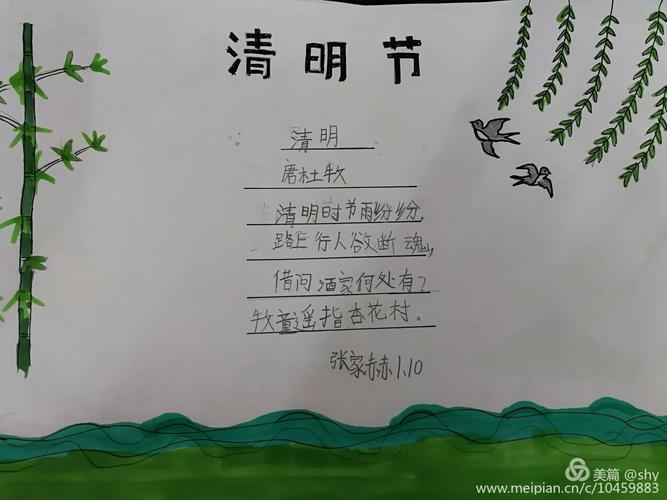 清明节
清明
唐杜牧
清明时节雨纷纷,
路上行人欲断魂,
借问酒家何处有?
牧童遥指杏花村。
张家赫1.10
美篇 @shy
www.meipian.cn/c/10459883